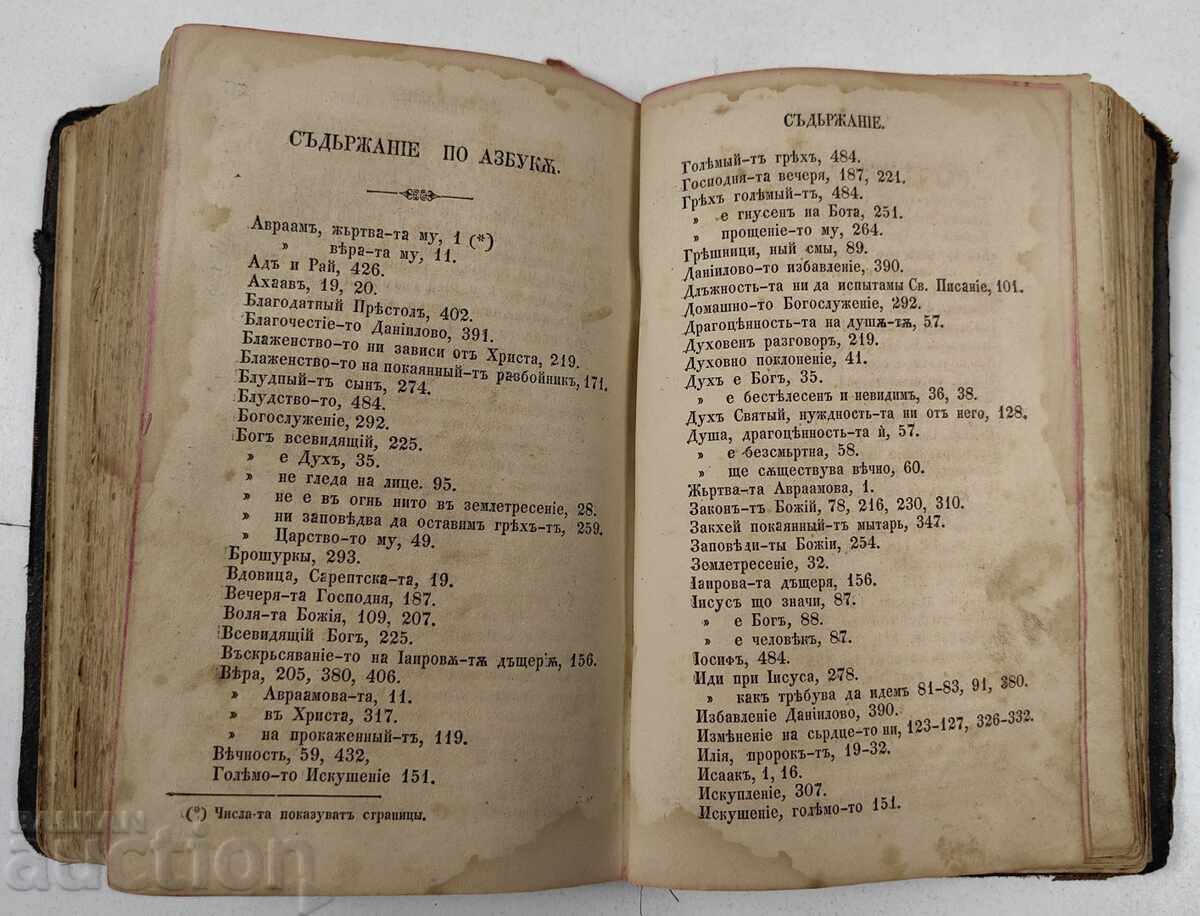 СЪДЬРЖАНІЕ ПО АЗБУКѪ.
Авраамъ, жьртва-та му, 1 (*)
» вѣра-та му, 11.
Адъ и Рай, 426.
Ахаавъ, 19, 20.
Благодатный Прѣстолъ, 402.
Благочестіе-то Даніилово, 391.
Блаженство-то ни зависи отъ Христа, 219.
Блаженство-то на покаянный-тъ разбойникъ, 171.
Блудный-тъ сынъ, 274.
Блудство-то, 484.
Богослуженіе, 292.
Богъ всевидящій, 225.
» е Духъ, 35.
» не гледа на лице. 95.
» не е въ огнь нито въ землетресеніе, 28.
» ни заповѣдва да оставимъ грѣхъ-тъ, 259.
» Царство-то му, 49.
Брошуркы, 293.
Вдовица, Сарептска-та, 19.
Вечеря-та Господня, 187.
Воля-та Божія, 109, 207.
Всевидящій Богъ, 225.
Въскрьсяваніе-то на Іаировѫ-тѫ дъщерѭ, 156.
Вѣра, 205, 380, 406.
» Авраамова-та, 11.
» въ Христа, 317.
» на прокаженный-тъ, 119.
Вѣчность, 59, 432,
Голѣмо-то Искушеніе 151.
(*) Числа-та показуватъ страницы.
СЪДЬРЖАНІЕ.
Голѣмый-тъ грѣхъ, 484.
Господня-та вечеря, 187, 221.
Грѣхъ голѣмый-тъ, 484.
» е гнусенъ на Бога, 251.
» прощеніе-то му, 264.
Грѣшници, ный смы, 89.
Даніилово-то избавленіе, 390.
Длъжность-та ни да испытамы Св. Писаніе, 101.
Домашно-то Богослуженіе, 292.
Драгоцѣнность-та на душѫ-тѫ, 57.
Духовенъ разговоръ, 219.
Духовно поклоненіе, 41.
Духъ е Богъ, 35.
» е бестѣлесенъ и невидимъ, 36, 38.
Духъ Святый, нуждность-та ни отъ него, 128.
Душа, драгоцѣнность-та ѝ, 57.
» е безсмьртна, 58.
» ще сѫществува вѣчно, 60.
Жьртва-та Авраамова, 1.
Законъ-тъ Божій, 78, 216, 230, 310.
Закхей покаянный-тъ мытарь, 347.
Заповѣди-ты Божіи, 254.
Землетресеніе, 32.
Іаирова-та дъщеря, 156.
Іисусъ що значи, 87.
» е Богъ, 88.
» е человѣкъ, 87.
Іосифъ, 484.
Иди при Іисуса, 278.
» какъ трѣбува да идемъ 81-83, 91, 380.
Избавленіе Даніилово, 390.
Измѣненіе на сърдце-то ни, 123-127, 326-332.
Илія, пророкъ-тъ, 19-32.
Исаакъ, 1, 16.
Искупленіе, 307.
Искушеніе, голѣмо-то 151.
auction